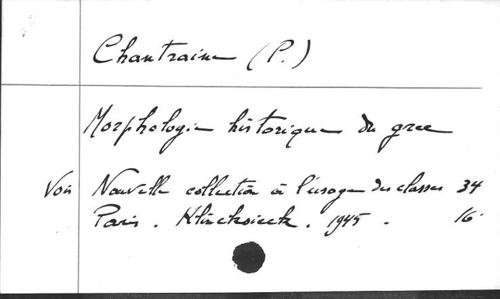 Chantraine (P.)
Morphologie historique du grec
Voir Nouvelle collection à l'usage des classes 34
Paris. Klincksieck. 1945. 16